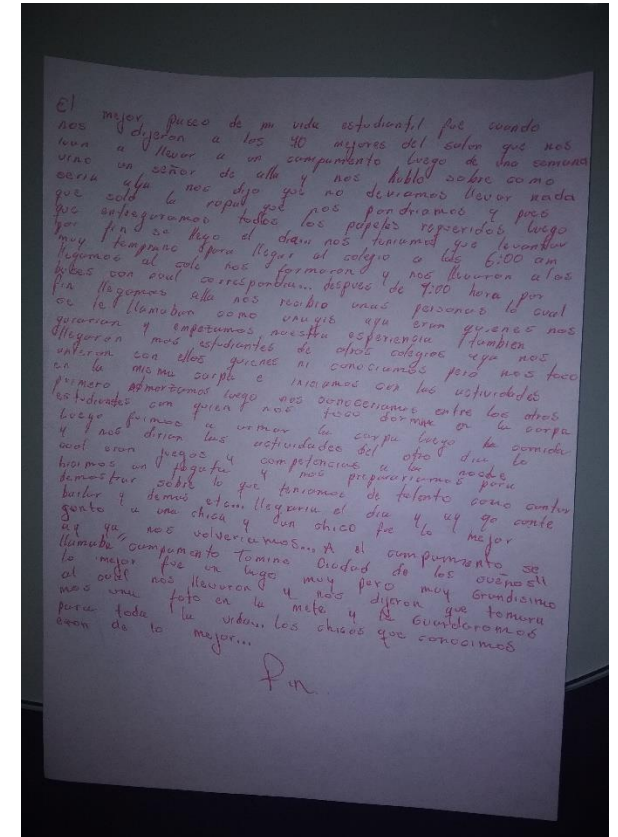 El mejor paseo de mi vida estudiantil fue cuando
nos dijeron a los 40 mejores del salon que nos
ivan a llevar a un campamento luego de una semana
vino un señor de alla y nos hablo sobre como
seria alla nos dijo que no deviamos llevar nada
que solo la ropa que nos pondriamos y pues
que entregaramos todos los papeles requeridos luego
por fin se llego el dia nos teniamos que levantar
muy temprano para llegar al colegio a las 6:00 am
llegamos al cole nos formaron y nos llevaron a los
buses con cual correspondia... despues de 9:00 hora por
fin llegamos alla nos recibio unas personas lo cual
se le llamaban como aya eran quienes nos
guiarian y empezamos nuestra esperiencia tambien
llegaron mas estudiantes de otros colegios aya nos
unieron con ellos quienes ni conociamos pero nos toco
en la misma carpa e iniciamos con las actividades
primero almorzamos luego nos conoceriamos entre los otros
estudiantes con quien nos toco dormir en la carpa
luego fuimos a armar la carpa luego la comida
y nos dirian las actividades del otro dia lo
cual eran juegos y competencias a la noche
hicimos un fogata y nos preparariamos para
demostrar sobre lo que teniamos de talento como cantar
bailar y demas etc... llegaria el dia y ay yo cante
junto a una chica y un chico fue lo mejor
ay ya nos volveriamos... A el campamento se
llamaba "campamento Tomino Ciudad de los sueños"
lo mejor fue un lago muy pero muy grandisimo
al cual nos llevaron y nos dijeron que tomara
mos una foto en la mete y la guardaramos
para toda la vida... los chicos que conocimos
eran de lo mejor...
Fin